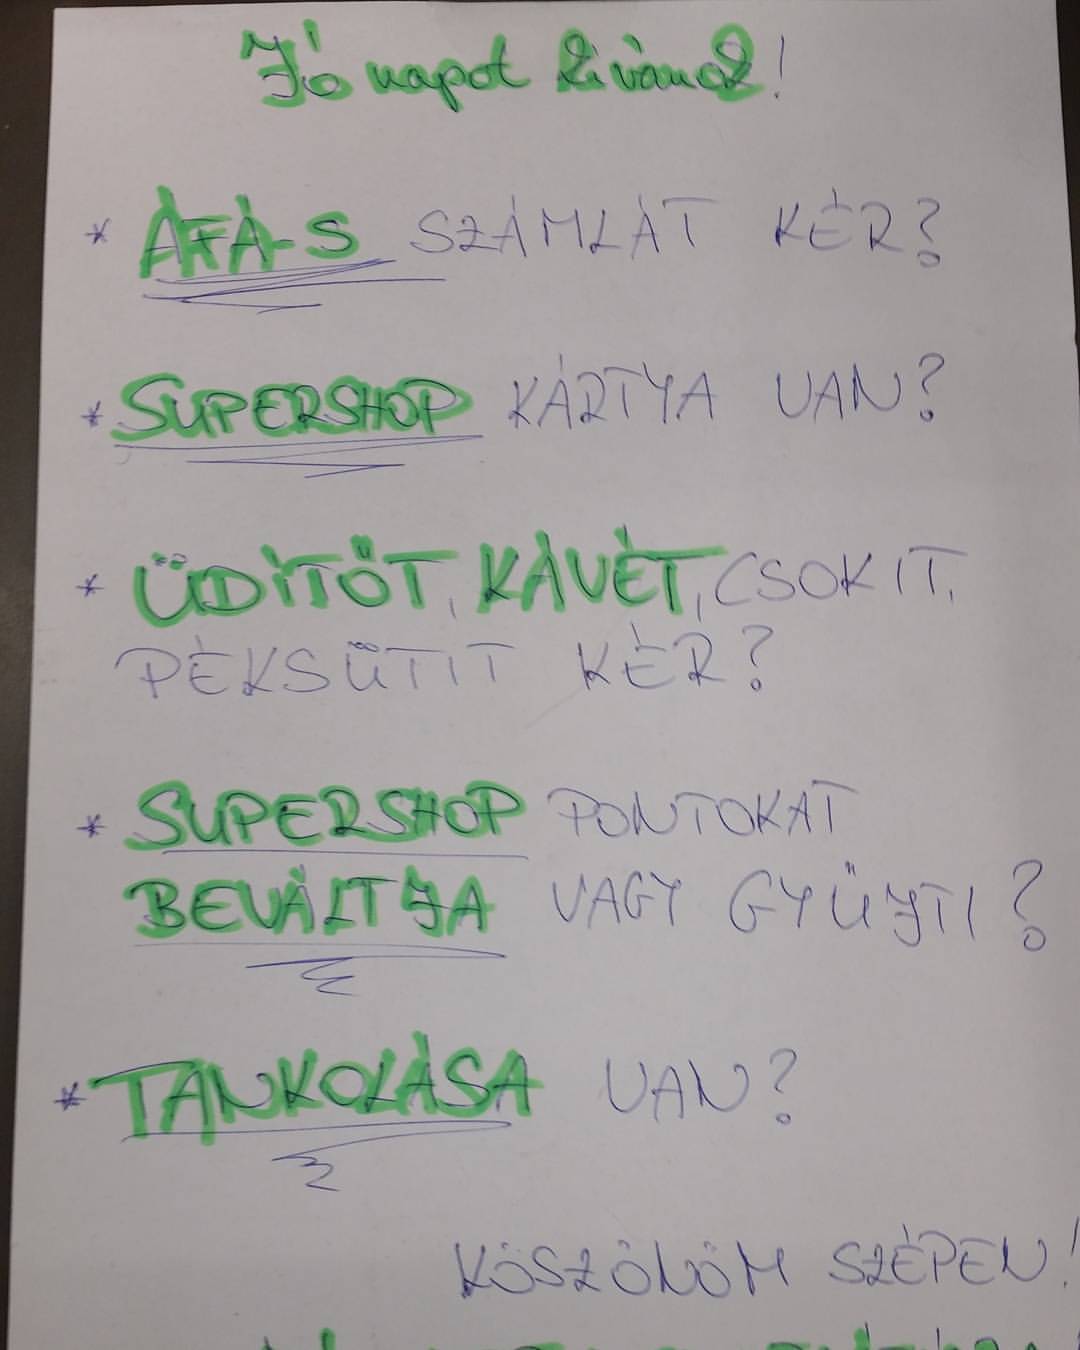 Jó napot kívánok!
* ÁFÁ-S SZÁMLÁT KÉR?
* SUPERSHOP KÁRTYA VAN?
* ÜDÍTŐT, KÁVÉT, CSOKIT,
PÉKSÜTIT KÉR?
* SUPERSHOP PONTOKAT
BEVÁLTJA VAGY GYŰJTI?
* TANKOLÁSA VAN?
KÖSZÖNÖM SZÉPEN!